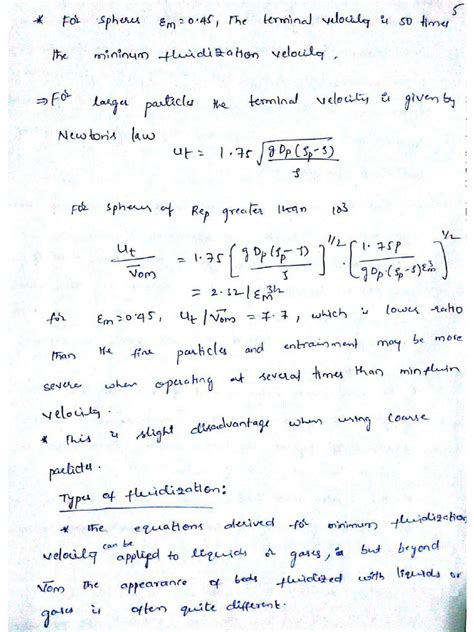 5
* For spheres εm=0.45, The terminal velocity is 50 times
the mininum fluidization velocity.
⇒ For larger particles the terminal velocity is given by
Newton's law
ut = 1.75 √(gDp(ρp-ρ)/ρ)
For spheres of Rep greater than 10^3
ut/V̄om = 1.75 [gDp(ρp-ρ)/ρ]^1/2 · [1.75ρ/gDp(ρp-ρ)εm^3]^1/2
= 2.32/εm^3/2
for εm=0.45, ut/V̄om = 7.7, which is lower ratio
than the fine particles and entrainment may be more
severe when operating at several times than minfluin
velocity.
* This is slight disadvantage when using coarse
particles.
Types of fluidization:
* The equations derived for minimum fluidization
velocity can be applied to liquids or gases, but beyond
V̄om the appearance of beds fluidized with liquids or
gases is often quite different.